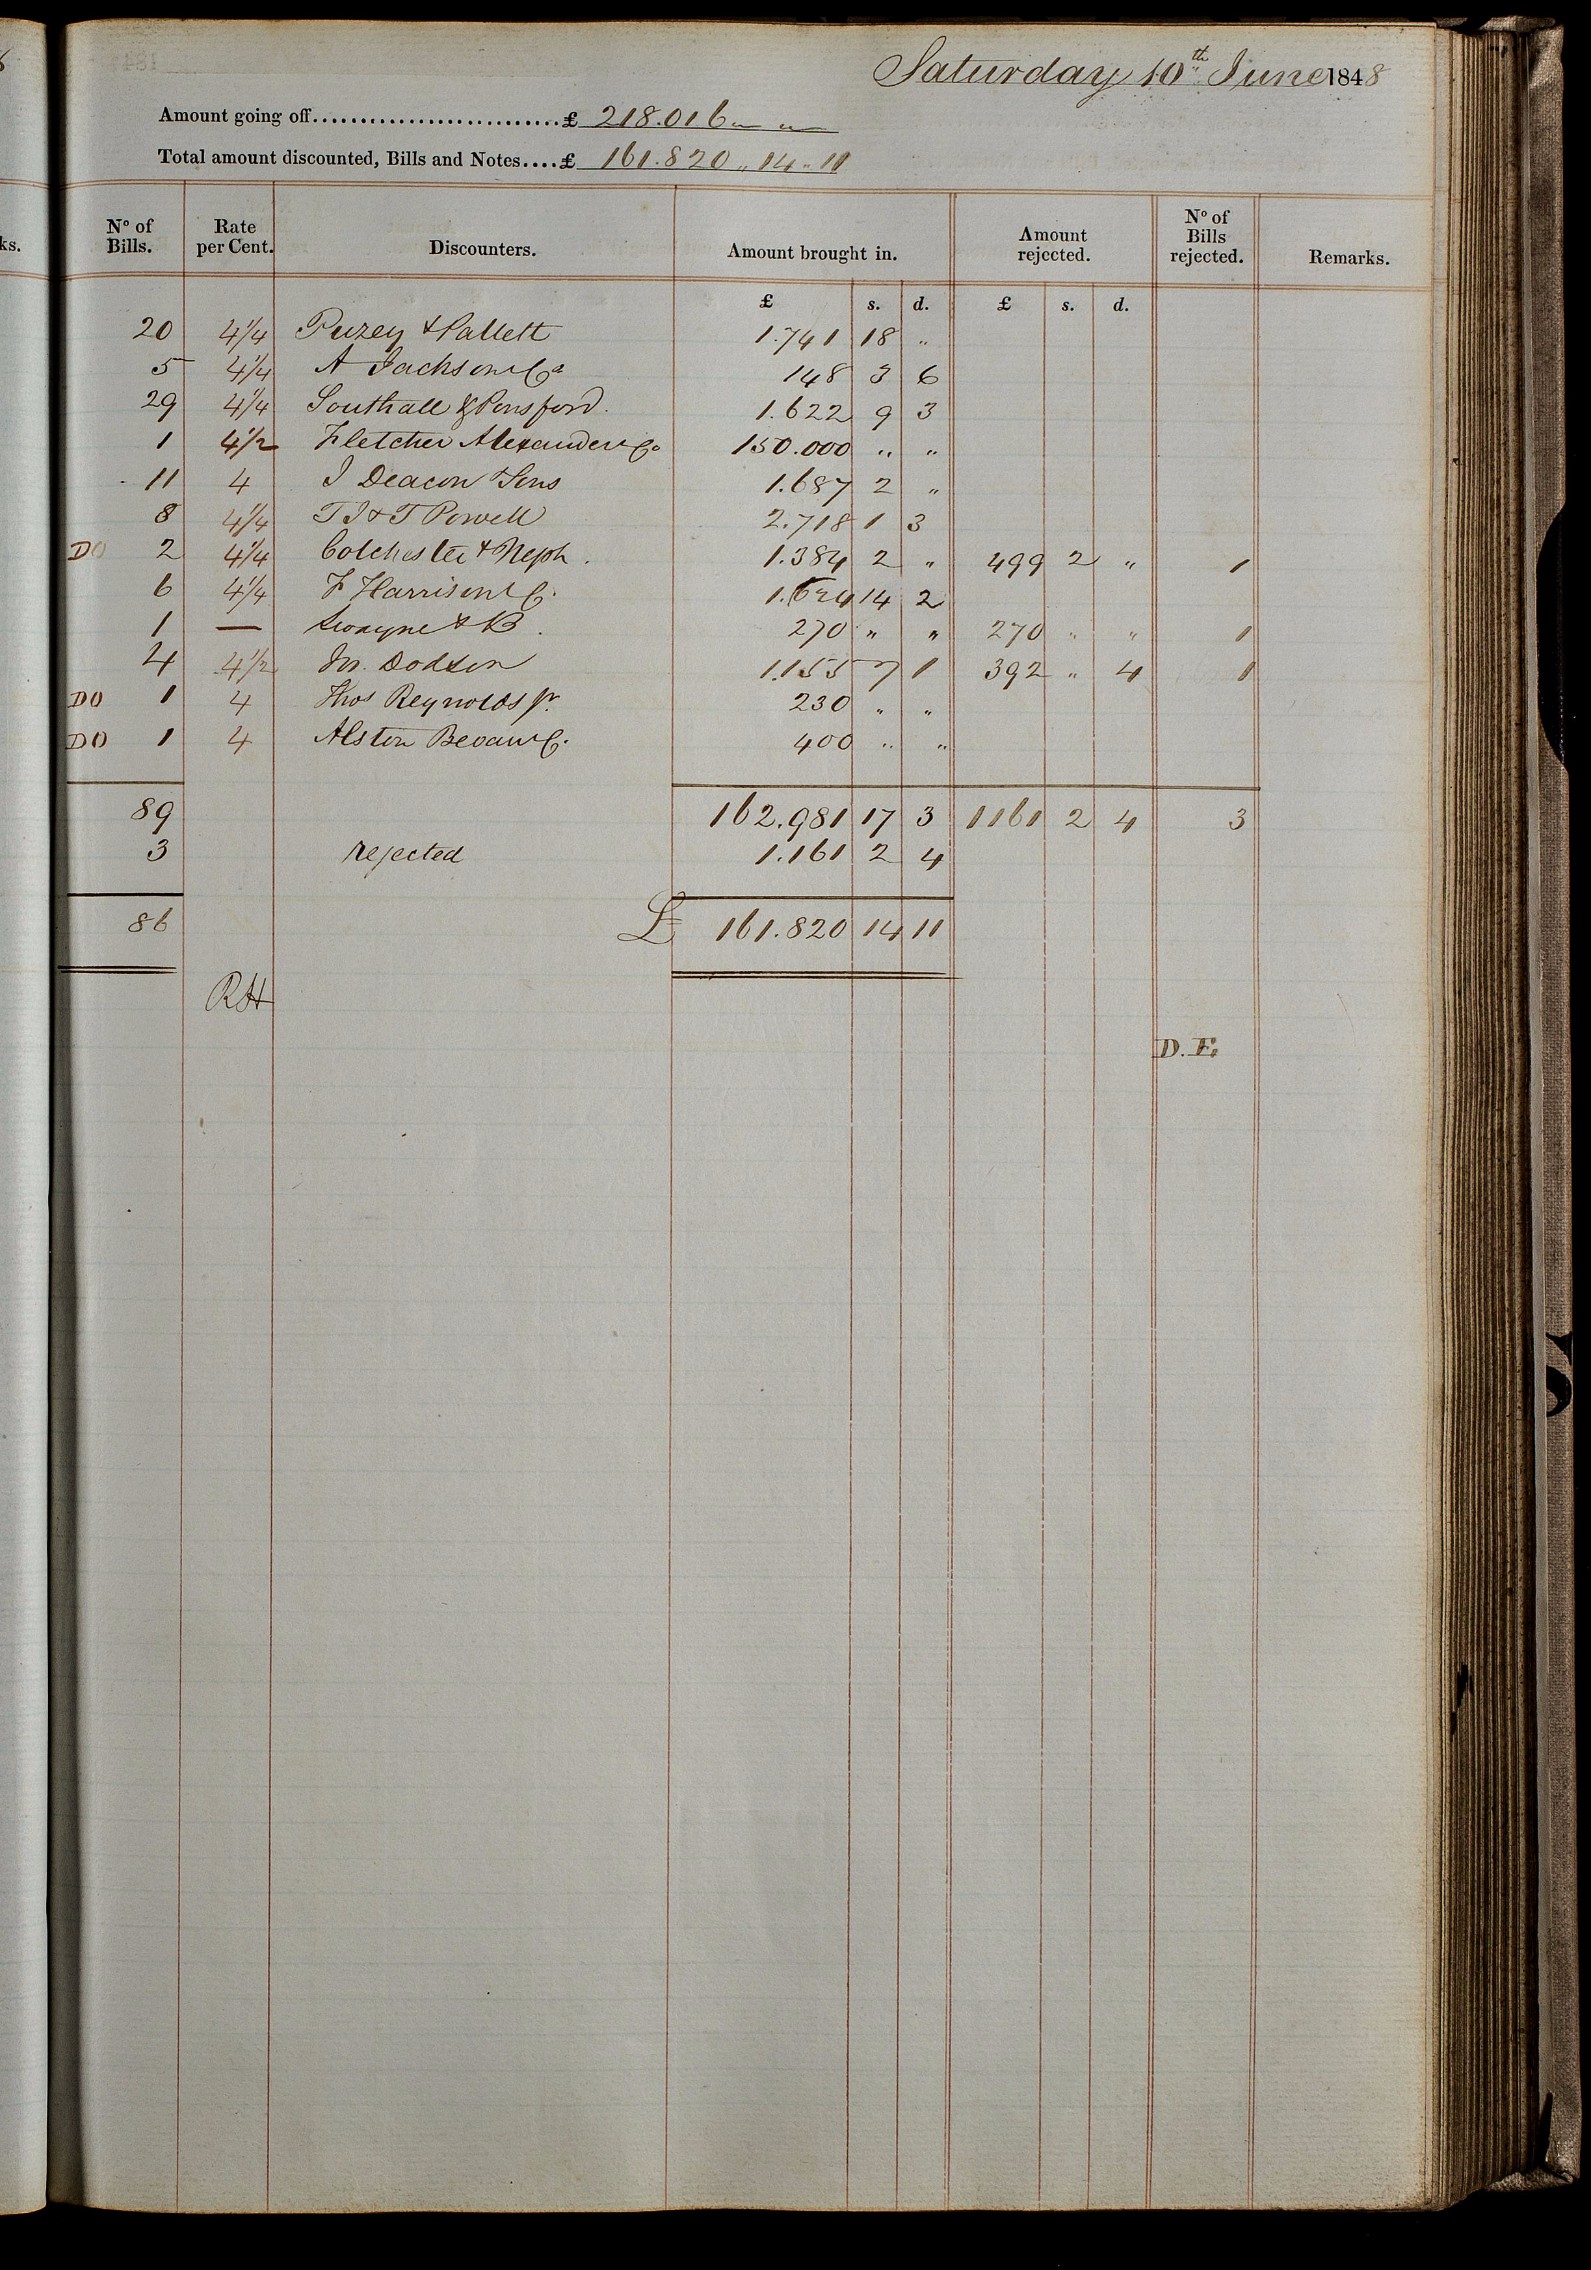 ks.
Saturday 10th June 1848
Amount going off........................£ 218.016 „ „
Total amount discounted, Bills and Notes....£ 161.820 „ 14 „ 11
No of Bills. Rate per Cent. Discounters. Amount brought in. Amount rejected. No of Bills rejected. Remarks.
£ s. d. £ s. d.
20 4 1/4 Puzey & Pallett 1.741 18 „
5 4 1/4 A Jackson & Co 148 3 6
29 4 1/4 Southall & Ponsford. 1.622 9 3
1 4 1/2 Fletcher Alexander & Co 150.000 „ „
11 4 J Deacon & Sons 1.687 2 „
8 4 1/4 T J & T Powell 2.718 1 3
DO 2 4 1/4 Colchester & Neph. 1.384 2 „ 499 2 „ 1
6 4 1/4 F Harrison & C. 1.624 14 2
1 — Swayne & B. 270 „ „ 270 „ „ 1
4 4 1/2 Jn. Dodson 1.155 7 1 392 „ 4 1
DO 1 4 Thos Reynolds Jr. 230 „ „
DO 1 4 Alston Bevan & C. 400 „ „
89 162.981 17 3 1161 2 4 3
3 rejected 1.161 2 4
86 £ 161.820 14 11
RH
D. E.